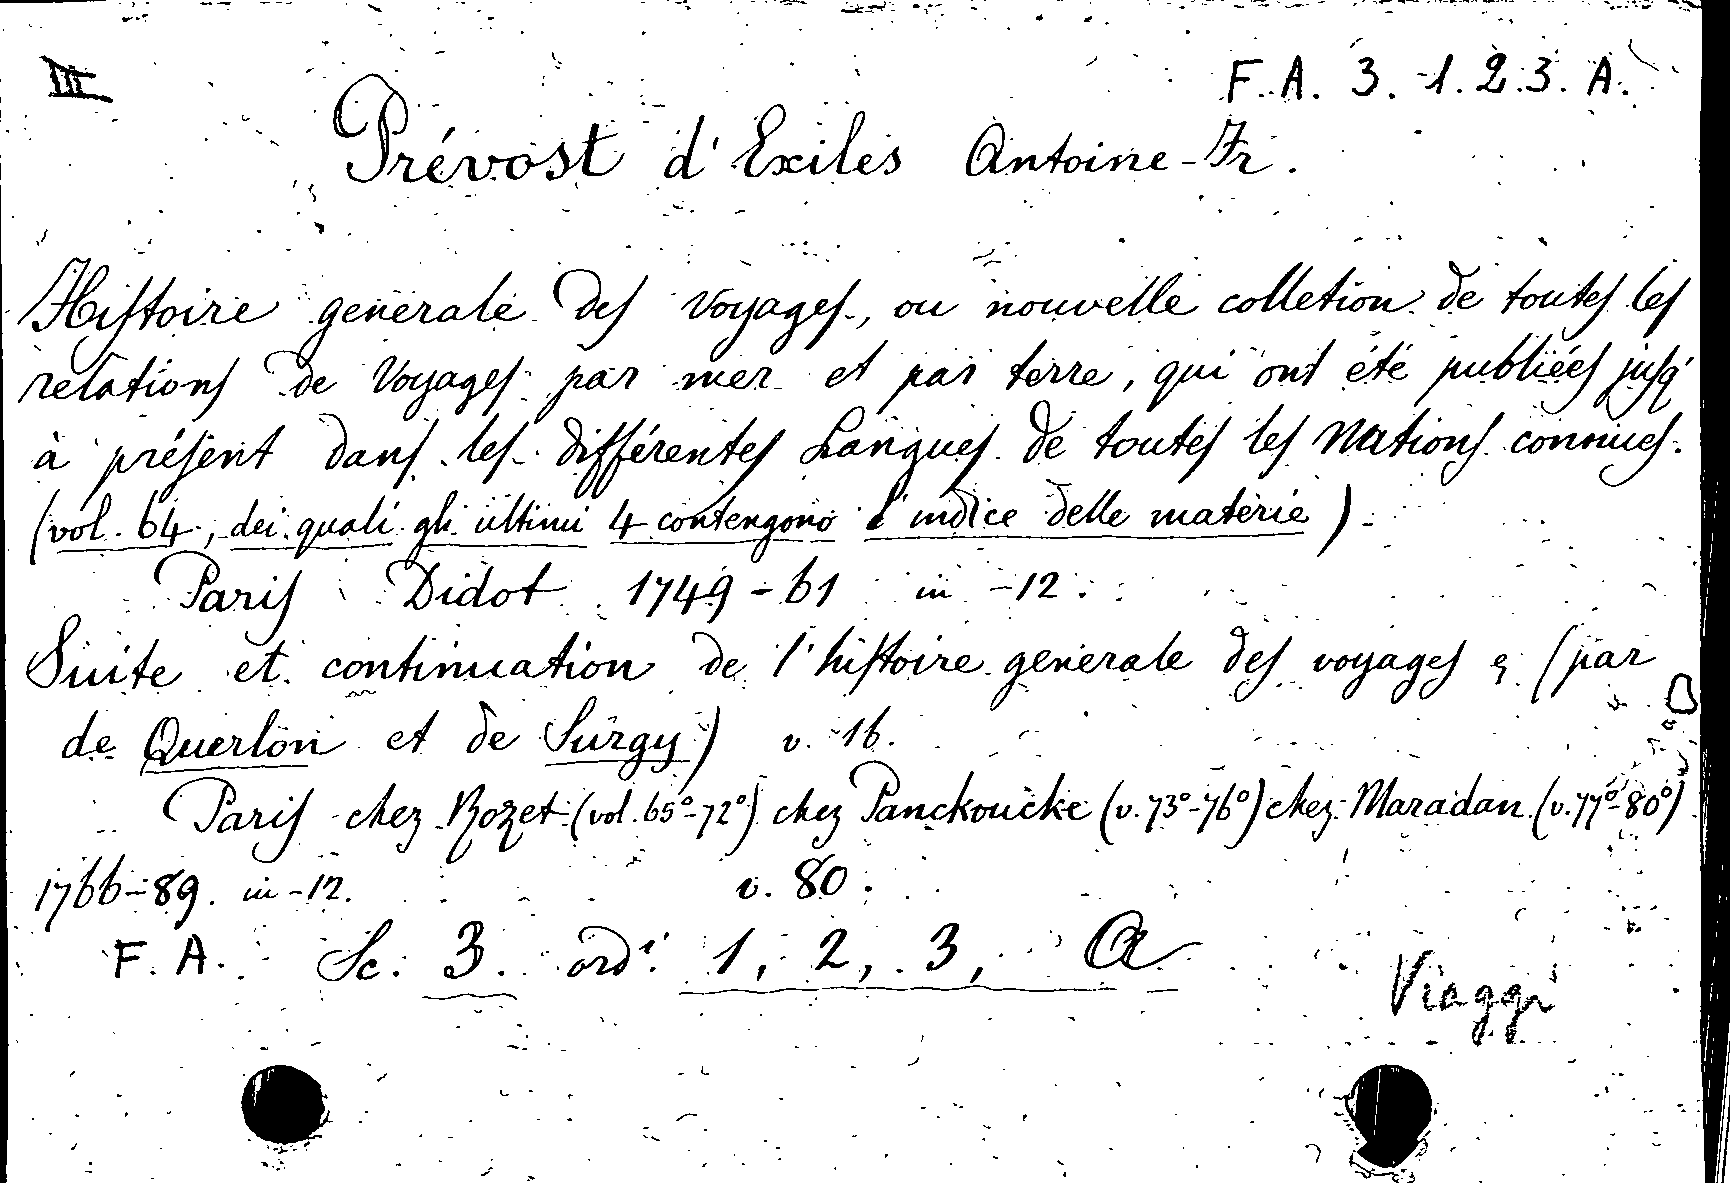 III
F. A. 3. 1. 2. 3. A.
Prévost d'Exiles Antoine-Fr.
Histoire generale des voyages, ou nouvelle colletion de toutes les
relations de Voyages par mer et par terre, qui ont été publiées jusq'
à présent dans les différentes Langues de toutes les Nations connues.
(vol. 64, dei quali gli ultimi 4 contengono l'indice delle materie)
Paris Didot 1749-61 in-12.
Suite et continuation de l'histoire generale des voyages (par
de Querlon et de Surgy) v. 16.
Paris chez Rozet (vol. 65°-72°) chez Panckoucke (v. 73°-76°) chez Maradan (v. 77°-80°)
1766-89. in-12. v. 80.
F. A. Sc. 3. ord.i 1, 2, 3, A
Viaggi